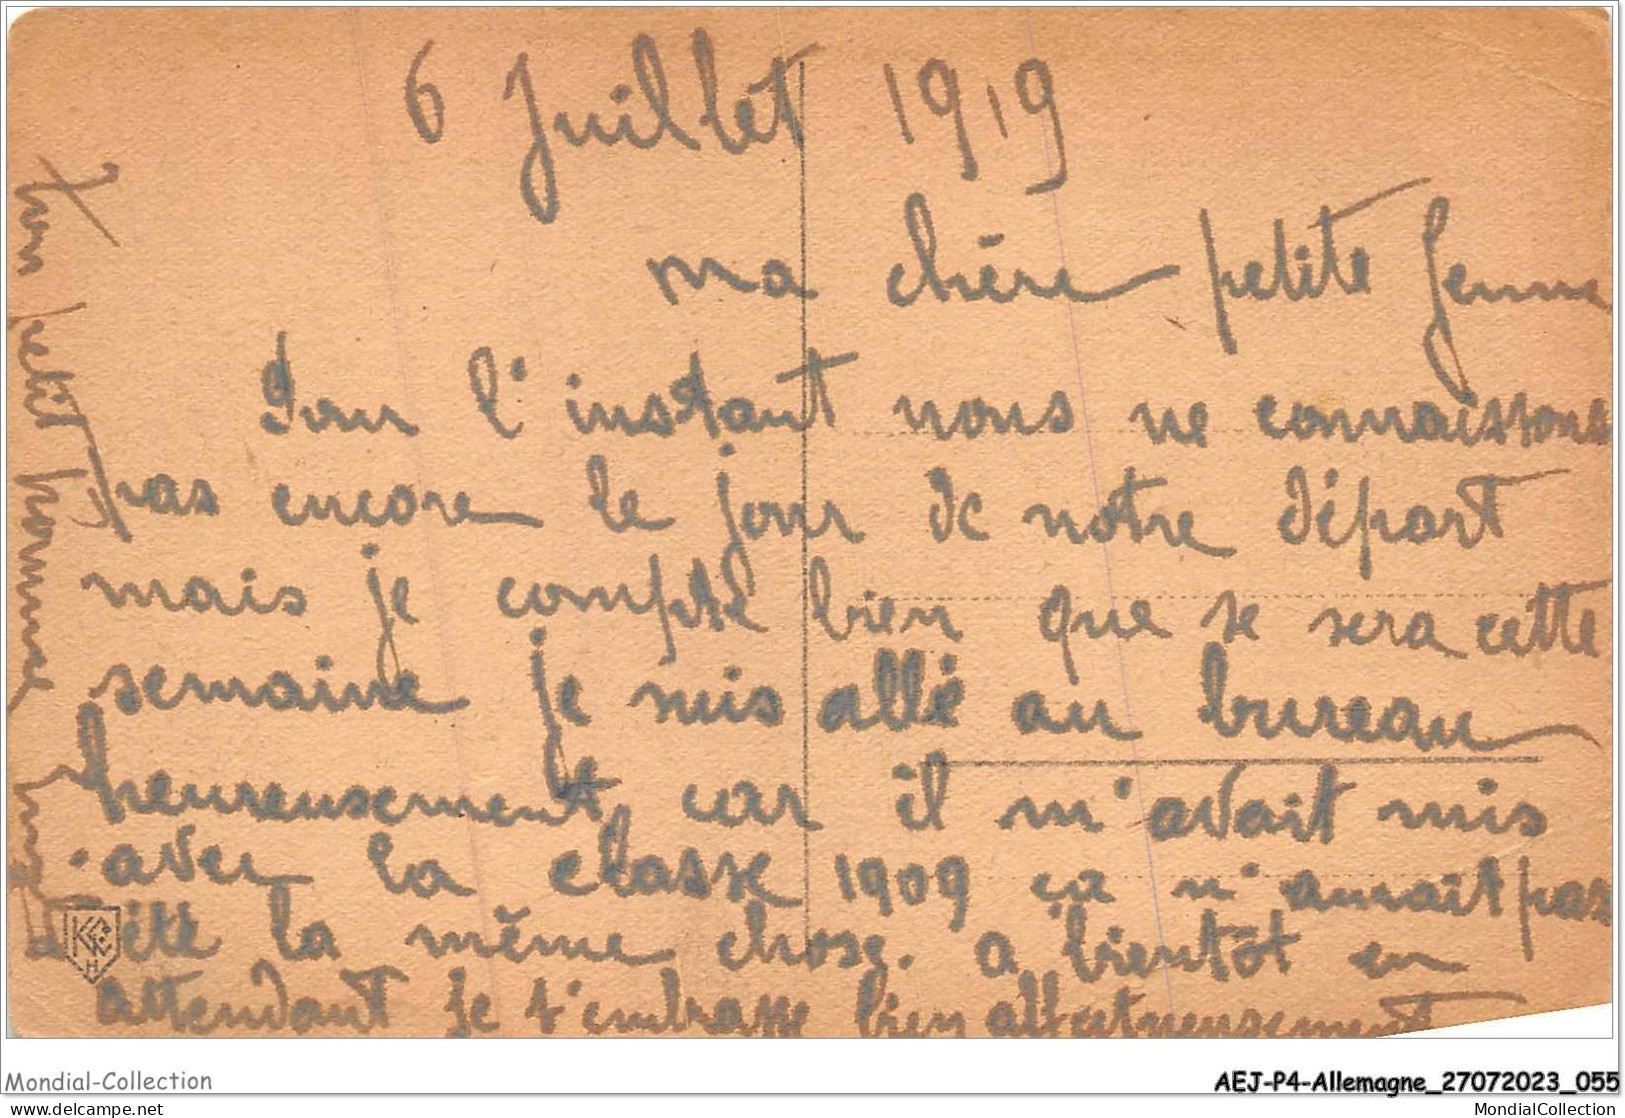 6 Juillet 1919
ma chère petite femme
Pour l'instant nous ne connaissons
pas encore le jour de notre départ
mais je compte bien que se sera cette
semaine je suis allé au bureau
heureusement car il m'avait mis
avec la classe 1909 ça n'aurait pas
été la même chose. a bientôt en
attendant je t'embrasse bien affectueusement
ton petit homme
KV
H
Mondial-Collection
AEJ-P4-Allemagne_27072023_055
delcampe.net
MondialCollection